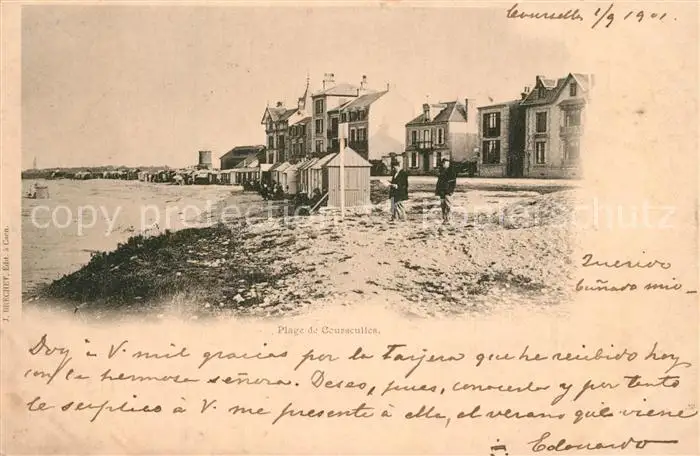 Courseulles 1/9 1901.
Querido
cuñado mio -
J. BRECHET, Edit. à Caen.
copyright copyright copyright
Plage de Courseulles.
Doy à V. mil gracias por la tarjera que he recibido hoy
con la hermosa señora. Deseo, pues, conocerla y por tanto
le suplico à V. me presente à ella, el verano que viene
Edouardo